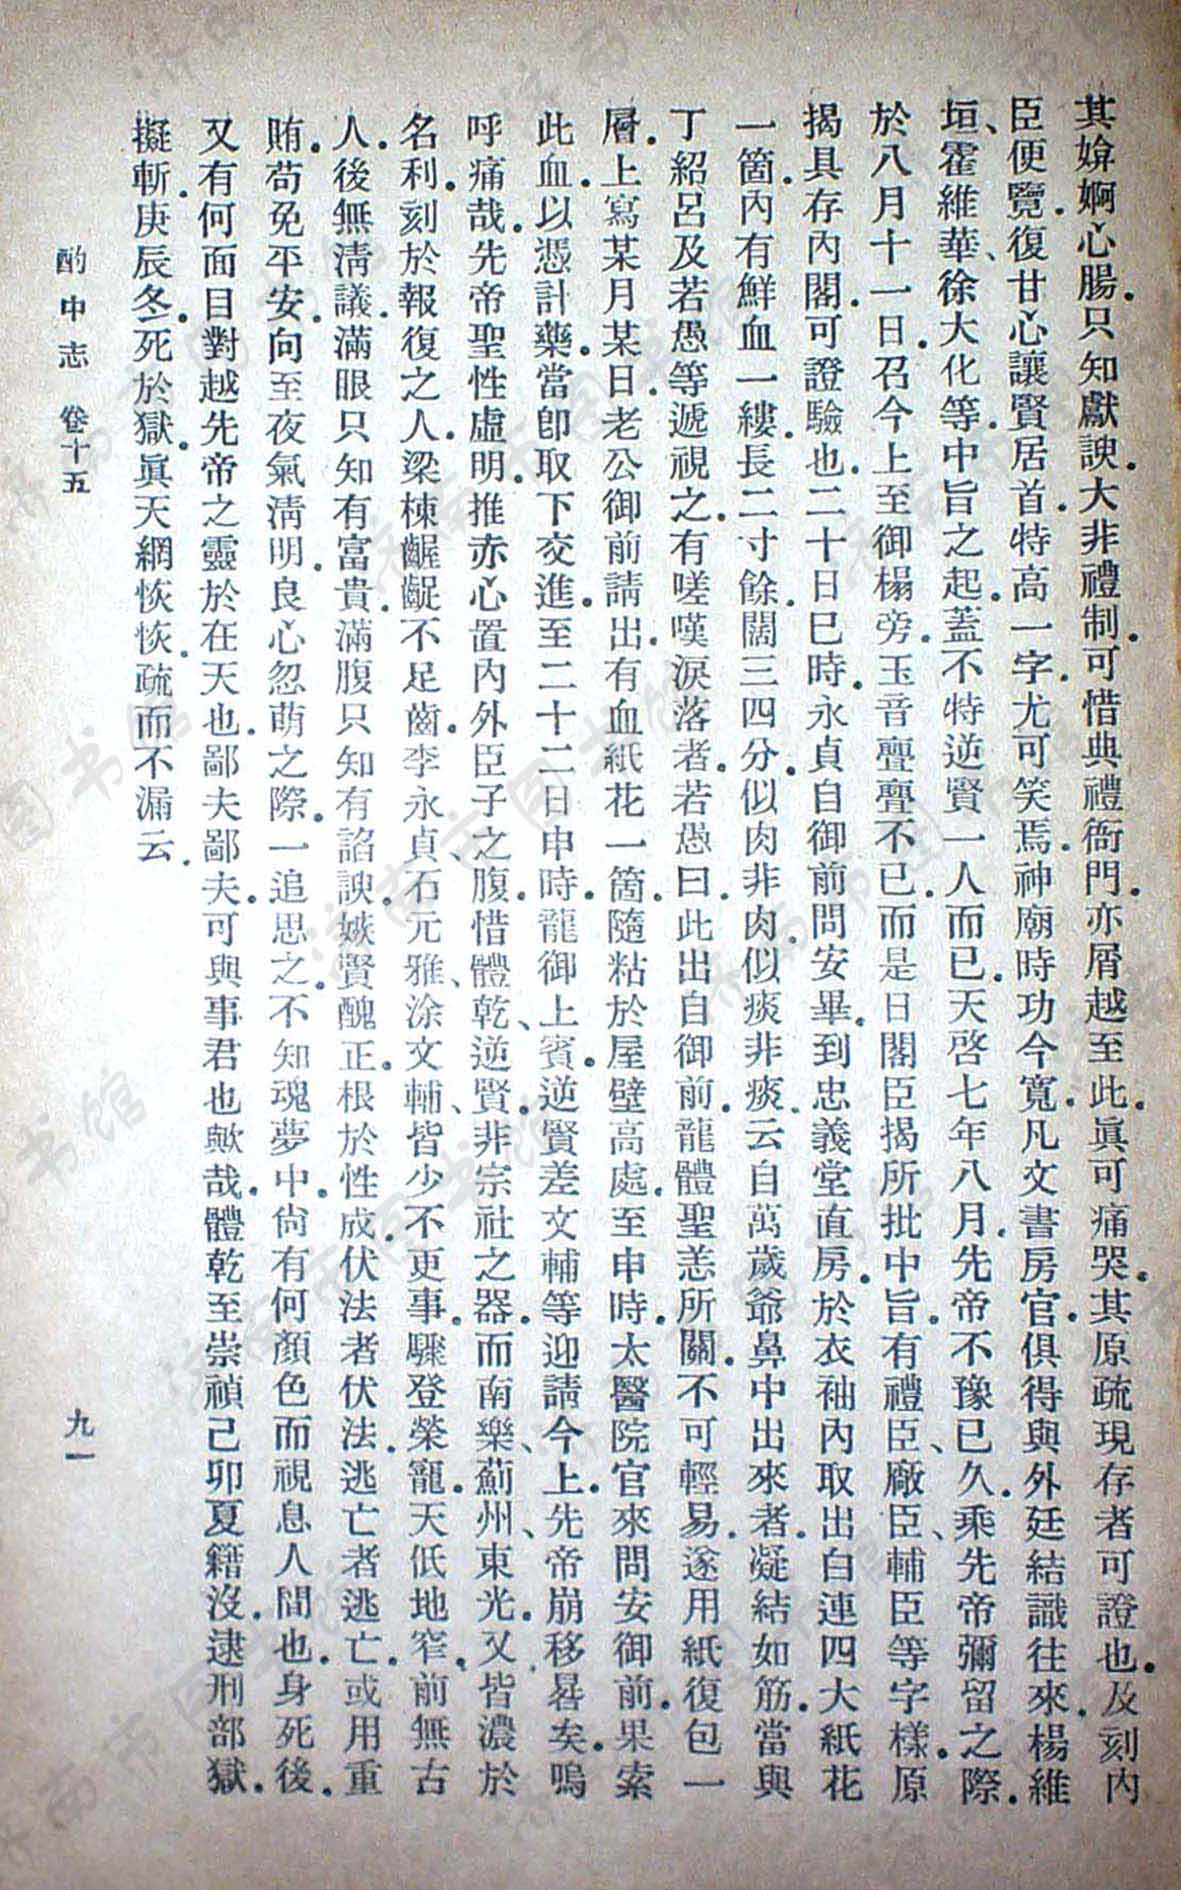 其媕婀心腸．只知獻諛．大非禮制．可惜典禮衙門．亦屑越至此．眞可痛哭．其原疏現存者可證也．及刻內
臣便覽．復甘心讓賢居首．特高一字．尤可笑焉．神廟時功令寬．凡文書房官．俱得與外廷結識往來．楊維
垣、霍維華、徐大化等．中旨之起．蓋不特逆賢一人而已．天啓七年八月．先帝不豫已久．乘先帝彌留之際．
於八月十一日．召今上至御榻旁．玉音亹亹不已．而是日閣臣揭所批中旨．有禮臣、廠臣、輔臣等字樣．原
揭具存內閣．可證驗也．二十日巳時．永貞自御前問安畢．到忠義堂直房．於衣袖內取出白連四大紙花
一箇．內有鮮血一縷．長二寸餘．闊三四分．似肉非肉．似痰非痰．云自萬歲爺鼻中出來者．凝結如筋．當與
丁紹呂及若愚等遞視之．有嗟嘆淚落者．若愚曰．此出自御前．龍體聖恙所關．不可輕易．遂用紙復包一
層．上寫某月某日．老公御前請出．有血紙花一箇．隨粘於屋壁高處．至申時．太醫院官來問安御前．果索
此血．以憑計藥．當卽取下交進．至二十二日申時．龍御上賓．逆賢差文輔等迎請今上．先帝崩移晷矣．嗚
呼痛哉．先帝聖性虛明．推赤心置內外臣子之腹．惜體乾、逆賢．非宗社之器．而南樂、薊州、東光．又皆濃於
名利．刻於報復之人．梁棟齷齪不足齒．李永貞、石元雅、涂文輔、皆少不更事．驟登榮寵．天低地窄．前無古
人．後無淸議．滿眼只知有富貴．滿腹只知有諂諛．嫉賢醜正．根於性成．伏法者伏法．逃亡者逃亡．或用重
賄．苟免平安．向至夜氣淸明．良心忽萌之際．一追思之．不知魂夢中．尙有何顏色而視息人間也．身死後．
又有何面目對越先帝之靈於在天也．鄙夫鄙夫．可與事君也歟哉．體乾至崇禎己卯夏籍沒．逮刑部獄．
擬斬．庚辰冬．死於獄．眞天網恢恢．疏而不漏云．
酌中志　卷十五
九一
濟南市图书馆